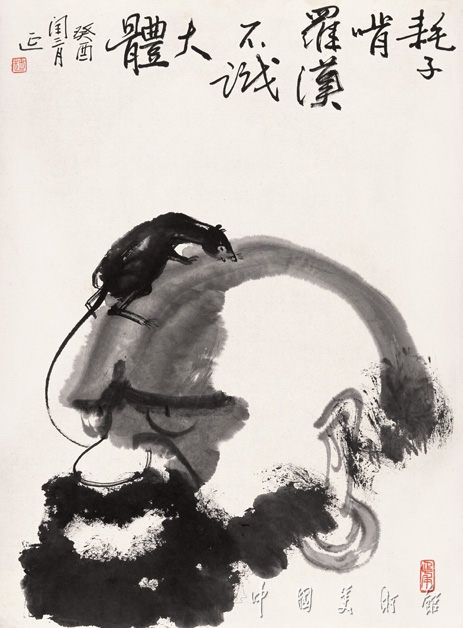 耗子
啃
羅漢
不識
大
體
癸酉
閏三月
中國美术館